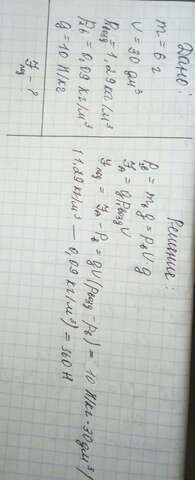 Дано:
m = 6 г
V = 30 дм³
ρвозд = 1,29 кг/м³
ρв = 0,09 кг/м³
g = 10 Н/кг
Fпод - ?
Решение:
Pв = mв g = ρв V g
FA = gρвозд V
Fпод = FA - Pв = gV(ρвозд - ρв) = 10 Н/кг · 30 дм³ (
(1,29 кг/м³ - 0,09 кг/м³) = 360 Н